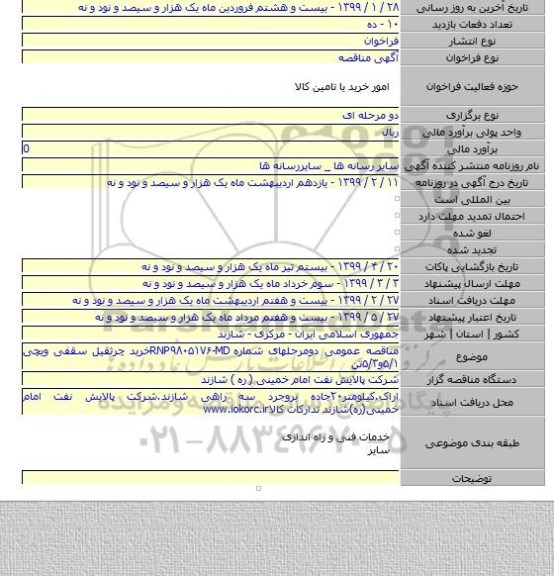 تاریخ آخرین به روز رسانی ۲۸ / ۱ / ۱۳۹۹ - بیست و هشتم فروردین ماه یک هزار و سیصد و نود و نه
تعداد دفعات بازدید ۱۰ - ده
نوع انتشار فراخوان
نوع فراخوان آگهی مناقصه
حوزه فعالیت فراخوان امور خرید یا تامین کالا
نوع برگزاری دو مرحله ای
واحد پولی برآورد مالی ریال
برآورد مالی 0
نام روزنامه منتشر کننده آگهی سایر رسانه ها _ سایررسانه ها
تاریخ درج آگهی در روزنامه ۱۱ / ۲ / ۱۳۹۹ - یازدهم اردیبهشت ماه یک هزار و سیصد و نود و نه
بین المللی است
احتمال تمدید مهلت دارد
لغو شده
تجدید شده
تاریخ بازگشایی پاکات ۲۰ / ۴ / ۱۳۹۹ - بیستم تیر ماه یک هزار و سیصد و نود و نه
مهلت ارسال پیشنهاد ۳ / ۳ / ۱۳۹۹ - سوم خرداد ماه یک هزار و سیصد و نود و نه
مهلت دریافت اسناد ۲۷ / ۲ / ۱۳۹۹ - بیست و هفتم اردیبهشت ماه یک هزار و سیصد و نود و نه
تاریخ اعتبار پیشنهاد ۲۷ / ۵ / ۱۳۹۹ - بیست و هفتم مرداد ماه یک هزار و سیصد و نود و نه
کشور | استان | شهر جمهوری اسلامی ایران - مرکزی - شازند
موضوع مناقصه عمومی دومرحلهای شماره RNP۹۸۰۵۱۷۶-MDخرید جرثقیل سقفی ویچی
۵/۱و۵/۳تن
دستگاه مناقصه گزار شرکت پالایش نفت امام خمینی ( ره ) شازند
محل دریافت اسناد اراک،کیلومتر۲۰جاده بروجرد سه راهی شازند.شرکت پالایش نفت امام
خمینی(ره)شازند تدارکات کالاwww.iokorc.ir
طبقه بندی موضوعی خدمات فنی و راه اندازی
سایر
توضیحات
ParsNamadData
پایگاه اطلاعات مناقصه ومزایده
۰۲۱-۸۸۳۴۹۶۷۰-۵